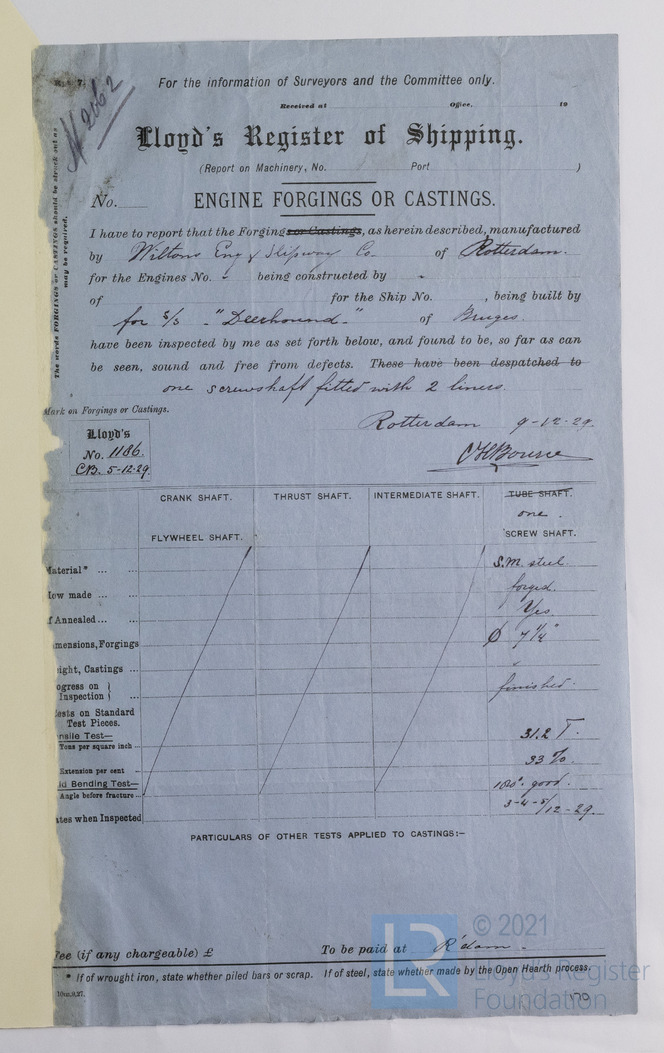 N 2062
For the information of Surveyors and the Committee only.
Received at Office, 19
Lloyd's Register of Shipping.
(Report on Machinery, No. Port )
No. ENGINE FORGINGS OR CASTINGS.
The words FORGINGS or CASTINGS should be struck out as
may be required.
I have to report that the Forgings or Castings, as herein described, manufactured
by Wiltons Eng & Slipway Co. of Rotterdam.
for the Engines No. - being constructed by -
of for the Ship No. , being built by
for S/S - "Deerhound." of Bruges.
have been inspected by me as set forth below, and found to be, so far as can
be seen, sound and free from defects. These have been despatched to
one screwshaft fitted with 2 liners.
Mark on Forgings or Castings.
Rotterdam 9-12-29.
Lloyd's
No. 1186.
CB. 5-12-29.
CHBourne
CRANK SHAFT. THRUST SHAFT. INTERMEDIATE SHAFT. TUBE SHAFT.
one.
FLYWHEEL SHAFT. SCREW SHAFT.
Material* ... ... S.M. steel.
How made ... ... forged.
If Annealed ... ... Yes.
mensions, Forgings Ø 7¼"
ight, Castings ... "
ogress on
Inspection } ... finished.
ests on Standard
Test Pieces.
nsile Test—
Tons per square inch ... 31.2 T.
Extension per cent ... 33 %.
ld Bending Test—
Angle before fracture... 180°. good.
ates when Inspected 3-4-5/12-29.
PARTICULARS OF OTHER TESTS APPLIED TO CASTINGS:—
Fee (if any chargeable) £ To be paid at R'dam -
* If of wrought iron, state whether piled bars or scrap. If of steel, state whether made by the Open Hearth process.
10m,9,27.
170
LR
© 2021
Lloyd's Register
Foundation